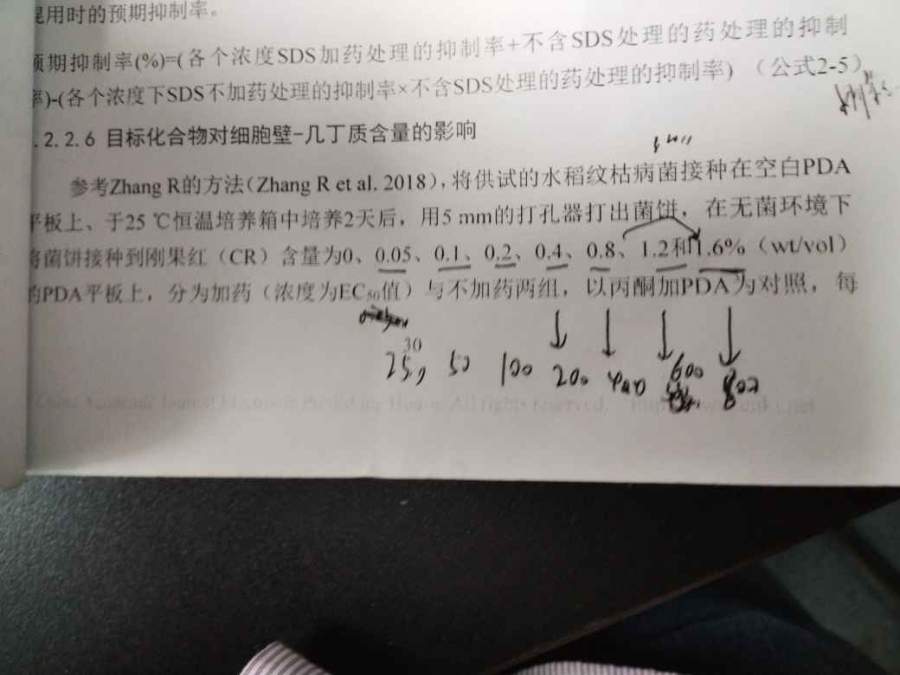 用时的预期抑制率。
期抑制率(%)=(各个浓度SDS加药处理的抑制率+不含SDS处理的药处理的抑制
率)-(各个浓度下SDS不加药处理的抑制率×不含SDS处理的药处理的抑制率) (公式2-5)
.2.2.6 目标化合物对细胞壁-几丁质含量的影响
参考Zhang R的方法(Zhang R et al. 2018),将供试的水稻纹枯病菌接种在空白PDA
平板上、于25 ℃恒温培养箱中培养2天后,用5 mm的打孔器打出菌饼,在无菌环境下
将菌饼接种到刚果红(CR)含量为0、0.05、0.1、0.2、0.4、0.8、1.2和1.6%(wt/vol)
的PDA平板上,分为加药(浓度为EC50值)与不加药两组,以丙酮加PDA为对照,每
30
25, 50 100 200 400 600 800